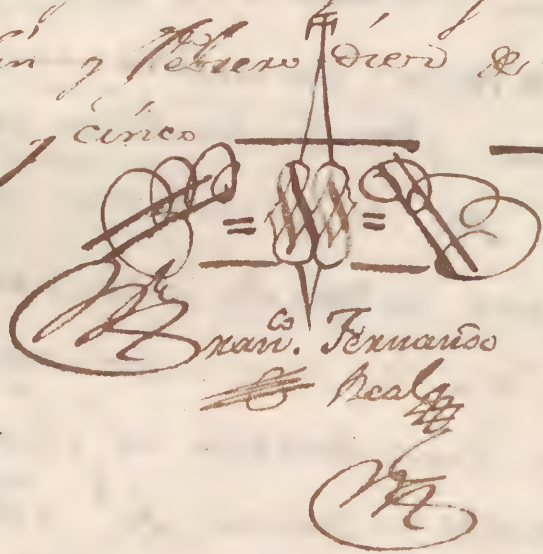 y Febrero diez de
y cinco
Fran.co Fernando
Real